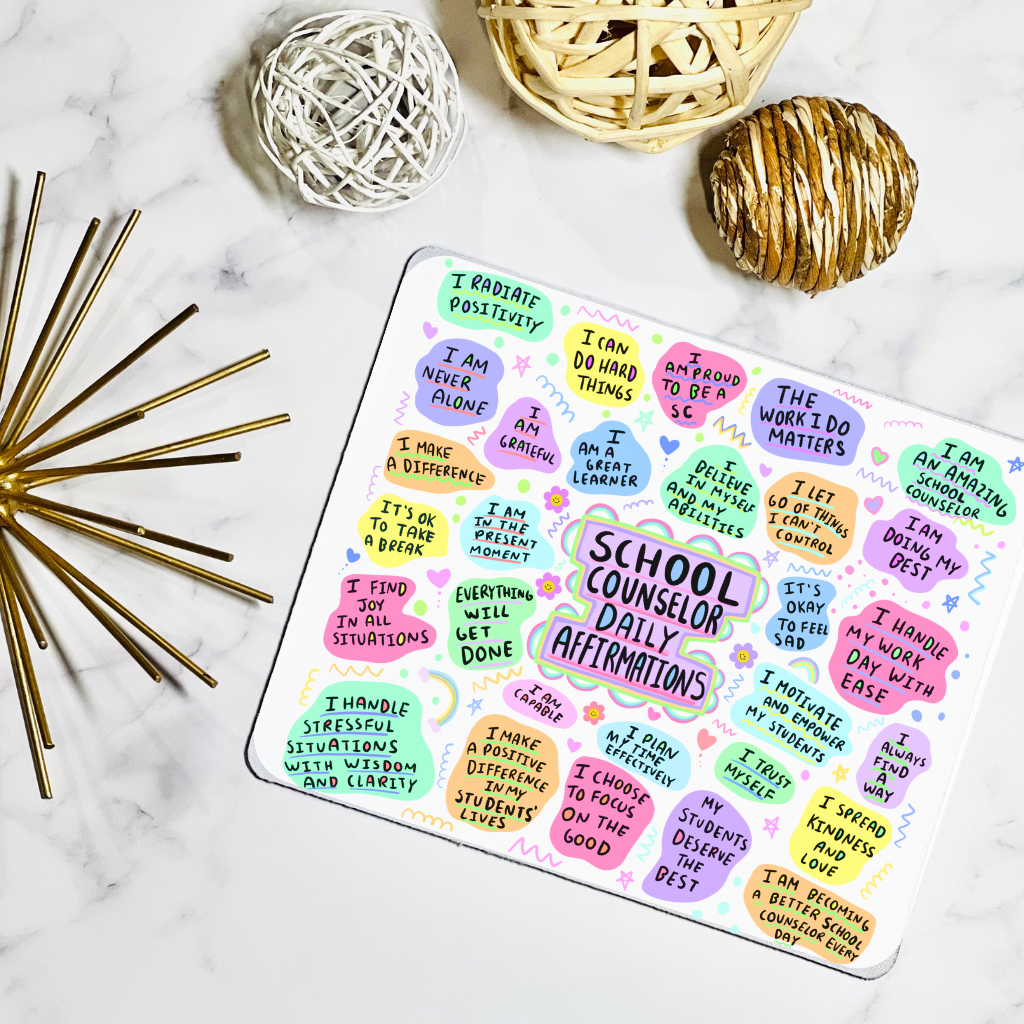 I RADIATE
POSITIVITY
I CAN
DO HARD
THINGS
I
AM PROUD
TO BE A
SC
THE
WORK I DO
MATTERS
I AM
AN AMAZING
SCHOOL
COUNSELOR
I AM
NEVER
ALONE
I
AM
GRATEFUL
I
AM A
GREAT
LEARNER
I
BELIEVE
IN MYSELF
AND MY
ABILITIES
I LET
GO OF THINGS
I CAN'T
CONTROL
I AM
DOING MY
BEST
I MAKE
A DIFFERENCE
IT'S OK
TO TAKE
A BREAK
I AM
IN THE
PRESENT
MOMENT
SCHOOL
COUNSELOR
DAILY
AFFIRMATIONS
IT'S
OKAY
TO FEEL
SAD
I HANDLE
MY WORK
DAY WITH
EASE
I FIND
JOY
IN ALL
SITUATIONS
EVERYTHING
WILL
GET
DONE
I MOTIVATE
AND EMPOWER
MY STUDENTS
I
ALWAYS
FIND
A
WAY
I HANDLE
STRESSFUL
SITUATIONS
WITH WISDOM
AND CLARITY
I AM
CAPABLE
I MAKE
A POSITIVE
DIFFERENCE
IN MY
STUDENTS'
LIVES
I PLAN
MY TIME
EFFECTIVELY
I TRUST
MYSELF
I CHOOSE
TO FOCUS
ON THE
GOOD
MY
STUDENTS
DESERVE
THE
BEST
I SPREAD
KINDNESS
AND
LOVE
I AM BECOMING
A BETTER SCHOOL
COUNSELOR EVERY
DAY